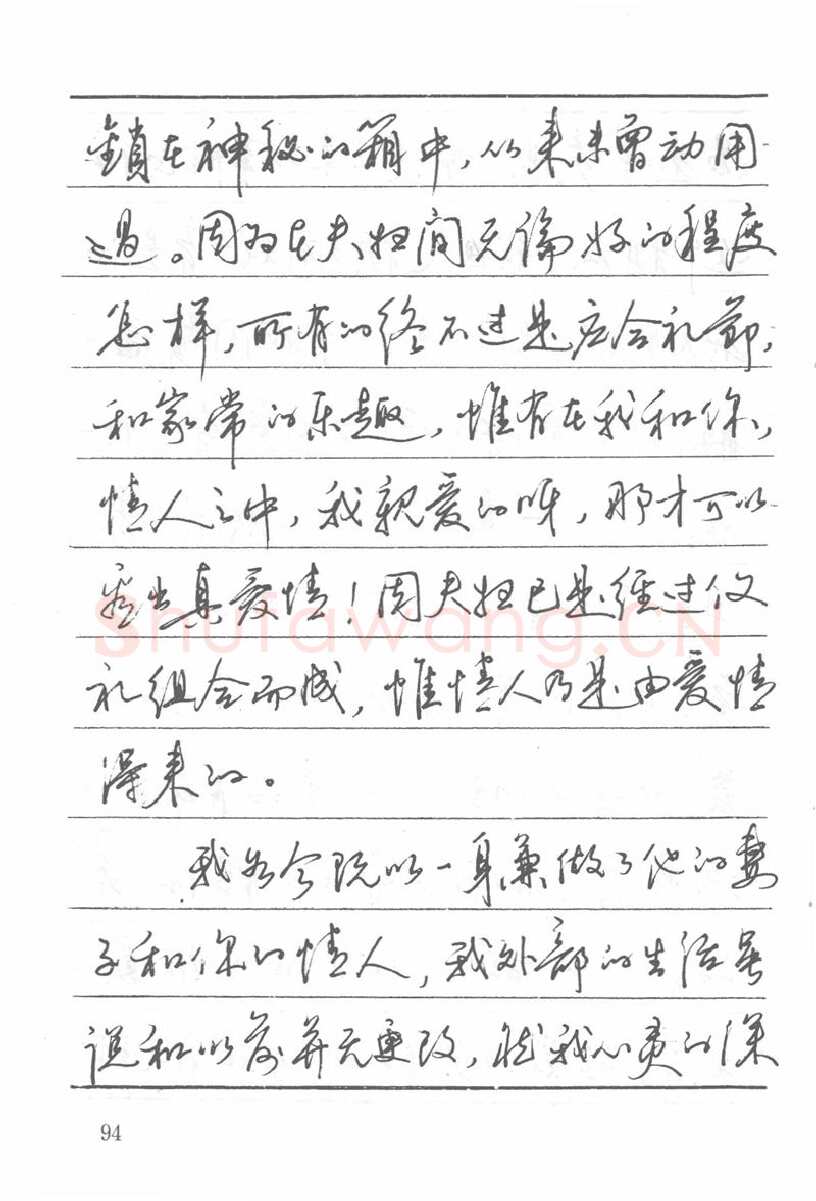 鎖在神秘的箱中，从来未曾动用
过。因为在夫妇間无論好的程度
怎样，所有的终不过是应合礼節，
和家常的乐趣，惟有在我和你，
情人之中，我親爱的呀，那才可以
看出真爱情！因夫妇已是经过仪
礼组合而成，惟情人乃是由爱情
得来的。
我如今既以一身兼做了他的妻
子和你的情人，我外部的生活虽
说和以前并无更改，我心灵的深
94
Shufawang.CN